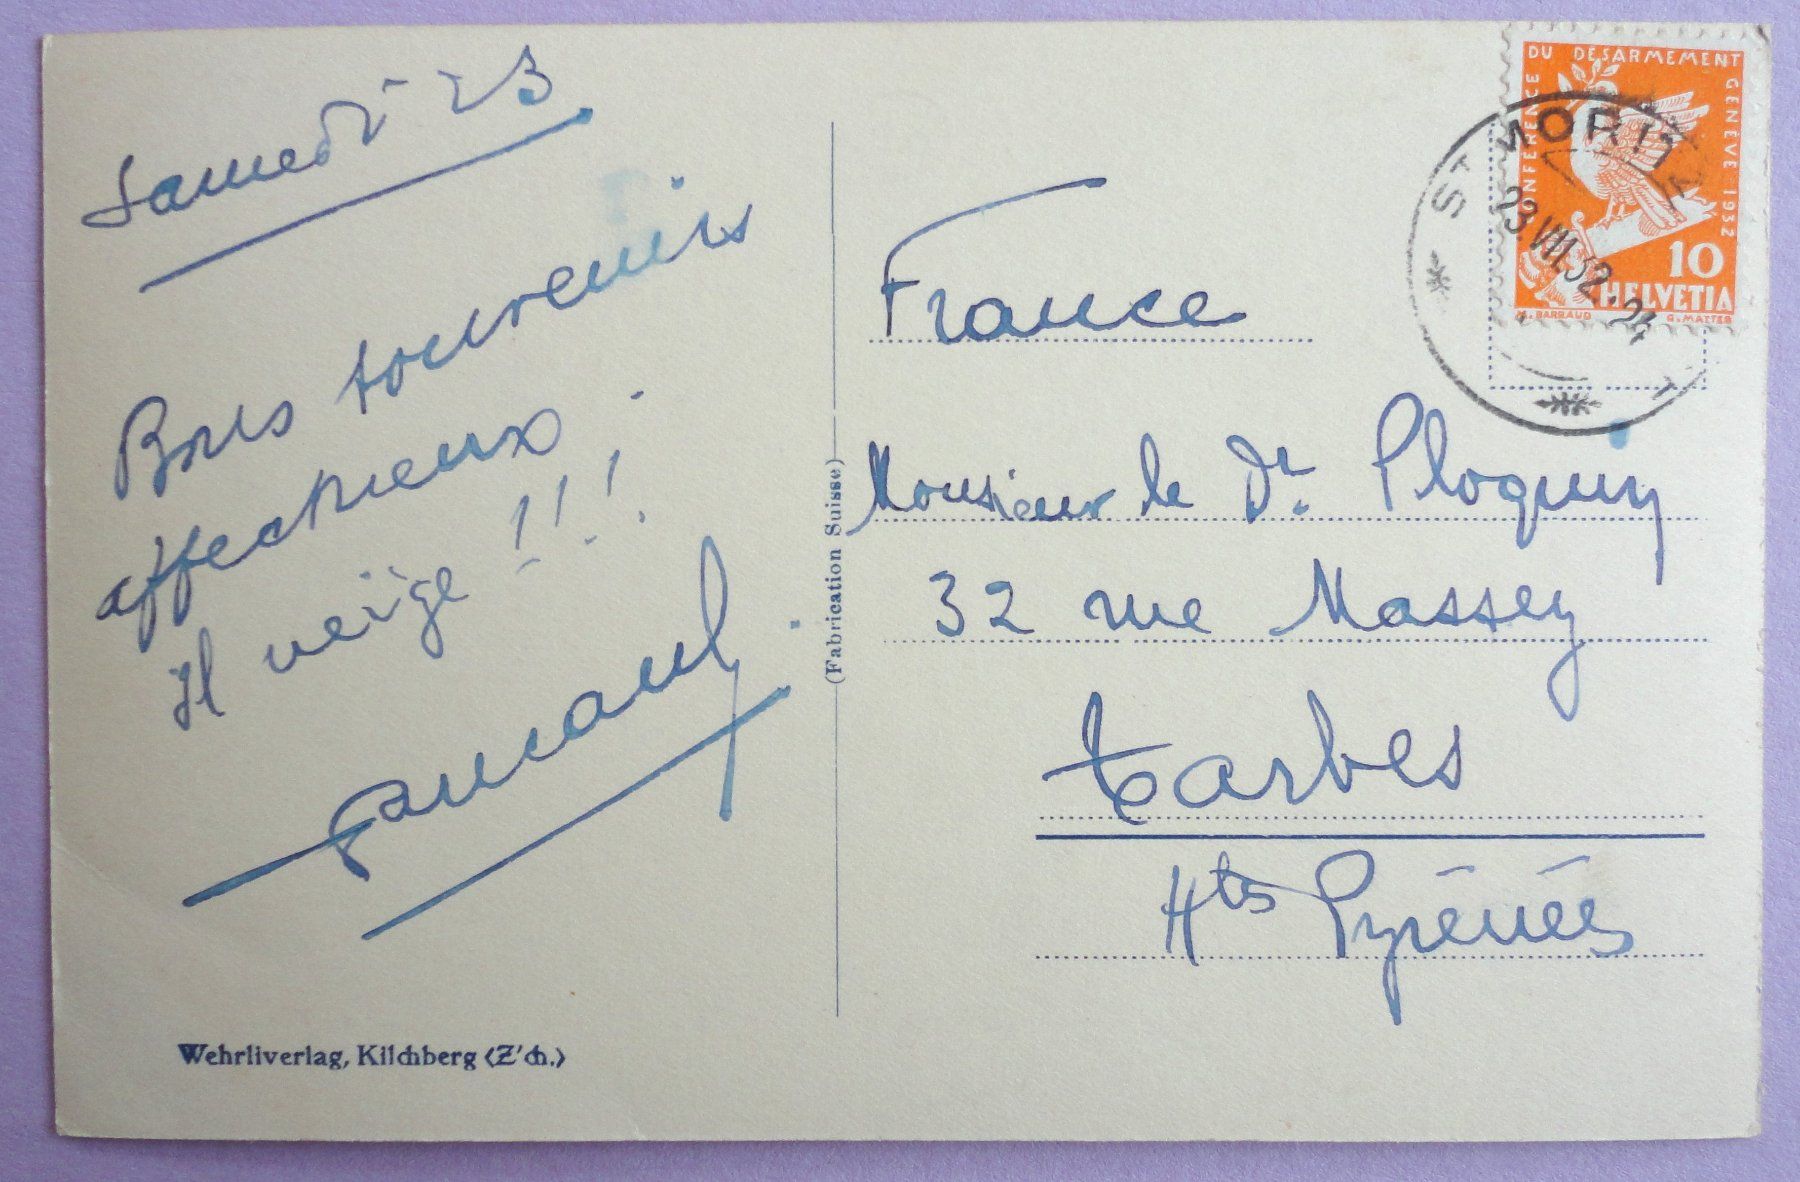 Samedi 23
Bons souvenirs
affectueux.
Il neige !!!
Wehrliverlag, Kilchberg (Z'ch.)
(Fabrication Suisse)
CONFERENCE DU DESARMEMENT GENÈVE 1932
10
HELVETIA
M. BARRAUD G. MATTER
ST. MORITZ
23.VII.32.24
France
Monsieur le Dr. Ploquin
32 rue Massey
Tarbes
Htes Pyrénées